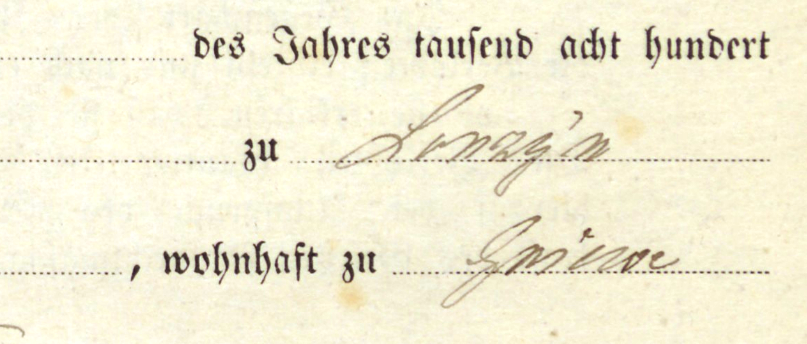 des Jahres tausend acht hundert
zu Lonzýn
, wohnhaft zu